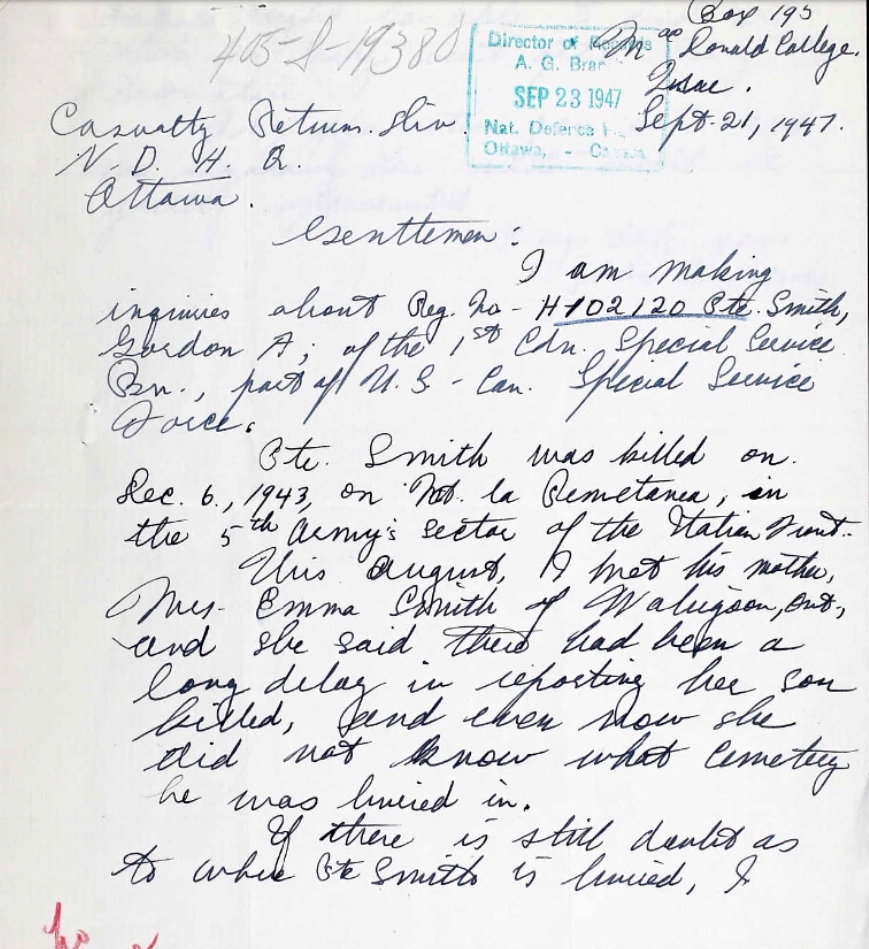 Box 195
405-S-19380
Mac Donald College.
Quebec.
Director of Records
A. G. Bran
SEP 23 1947
Nat. Defence H
Ottawa, - Canada
Sept. 21, 1947.
Casualty Returns. Div.
N. D. H. Q.
Ottawa.
Gentlemen:
I am making
inquiries about Reg. No - H102120 Pte. Smith,
Gordon A; of the 1st Cdn. Special Service
Bn., part of U.S - Can. Special Service
Force.
Pte. Smith was killed on
Dec. 6., 1943, on Mt. la Remetanea, in
the 5th Army's sector of the Italian Front.
This August, I met his mother,
Mrs. Emma Smith of Wabigoon, Ont.,
and she said there had been a
long delay in reporting her son
killed, and even now she
did not know what cemetery
he was buried in.
If there is still doubt as
to where Pte Smith is buried, I